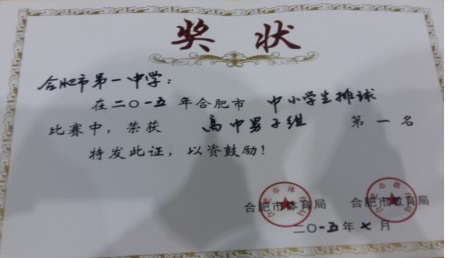 奖状
合肥市第一中学：
在二〇一五年合肥市 中小学生排球
比赛中，荣获 高中男子组 第一名
特发此证，以资鼓励！
合肥市体育局 合肥市教育局
二〇一五年七月